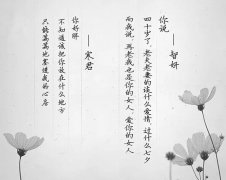 ——智妍
你说
四十岁了,老夫老妻的谈什么爱情 过什么七夕
而我说,再老我也是你的女人,爱你的女人
——寒君
你好胖
不知道该把你放在什么地方
只能满满地塞进我的心房